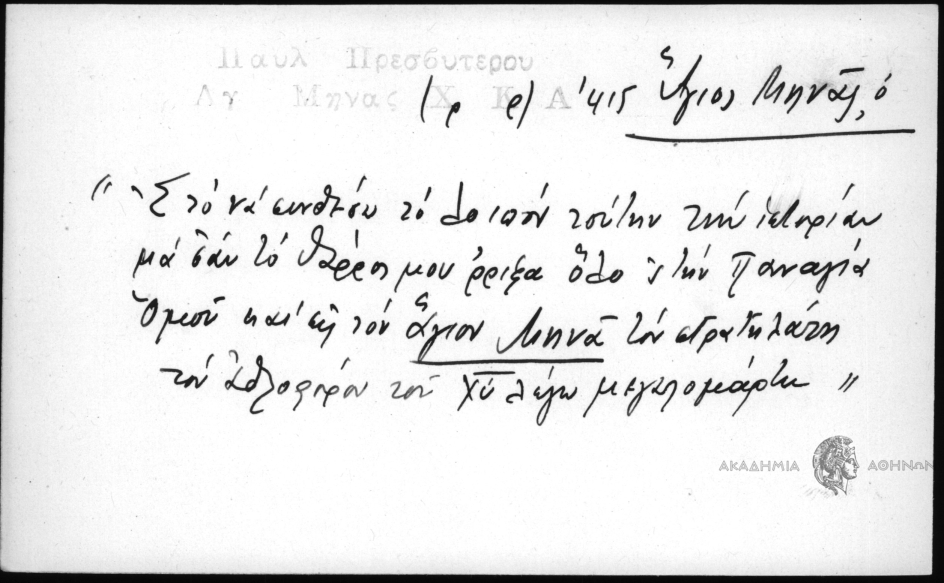 Παυλ Πρεσβυτερου
Αγ Μηνας Χ Κ Α
(ρ ρ) 415 Ἅγιος Μηνᾶς, ὁ
"Στὸ νὰ συνθέσω τὸ λοιπὸν τούτην τὴν ἱστορίαν
μὰ σὰν τὸ θάρρος μου ἔρριξα ὅλο 'ς τὴν Παναγία
Ὁμοῦ καὶ εἰς τὸν ἅγιον Μηνᾶ τὸν στρατηλάτη
τὸν ἀθλοφόρον τοῦ Χῦ λέγω μεγαλομάρτυ"
ΑΚΑΔΗΜΙΑ ΑΘΗΝΩΝ